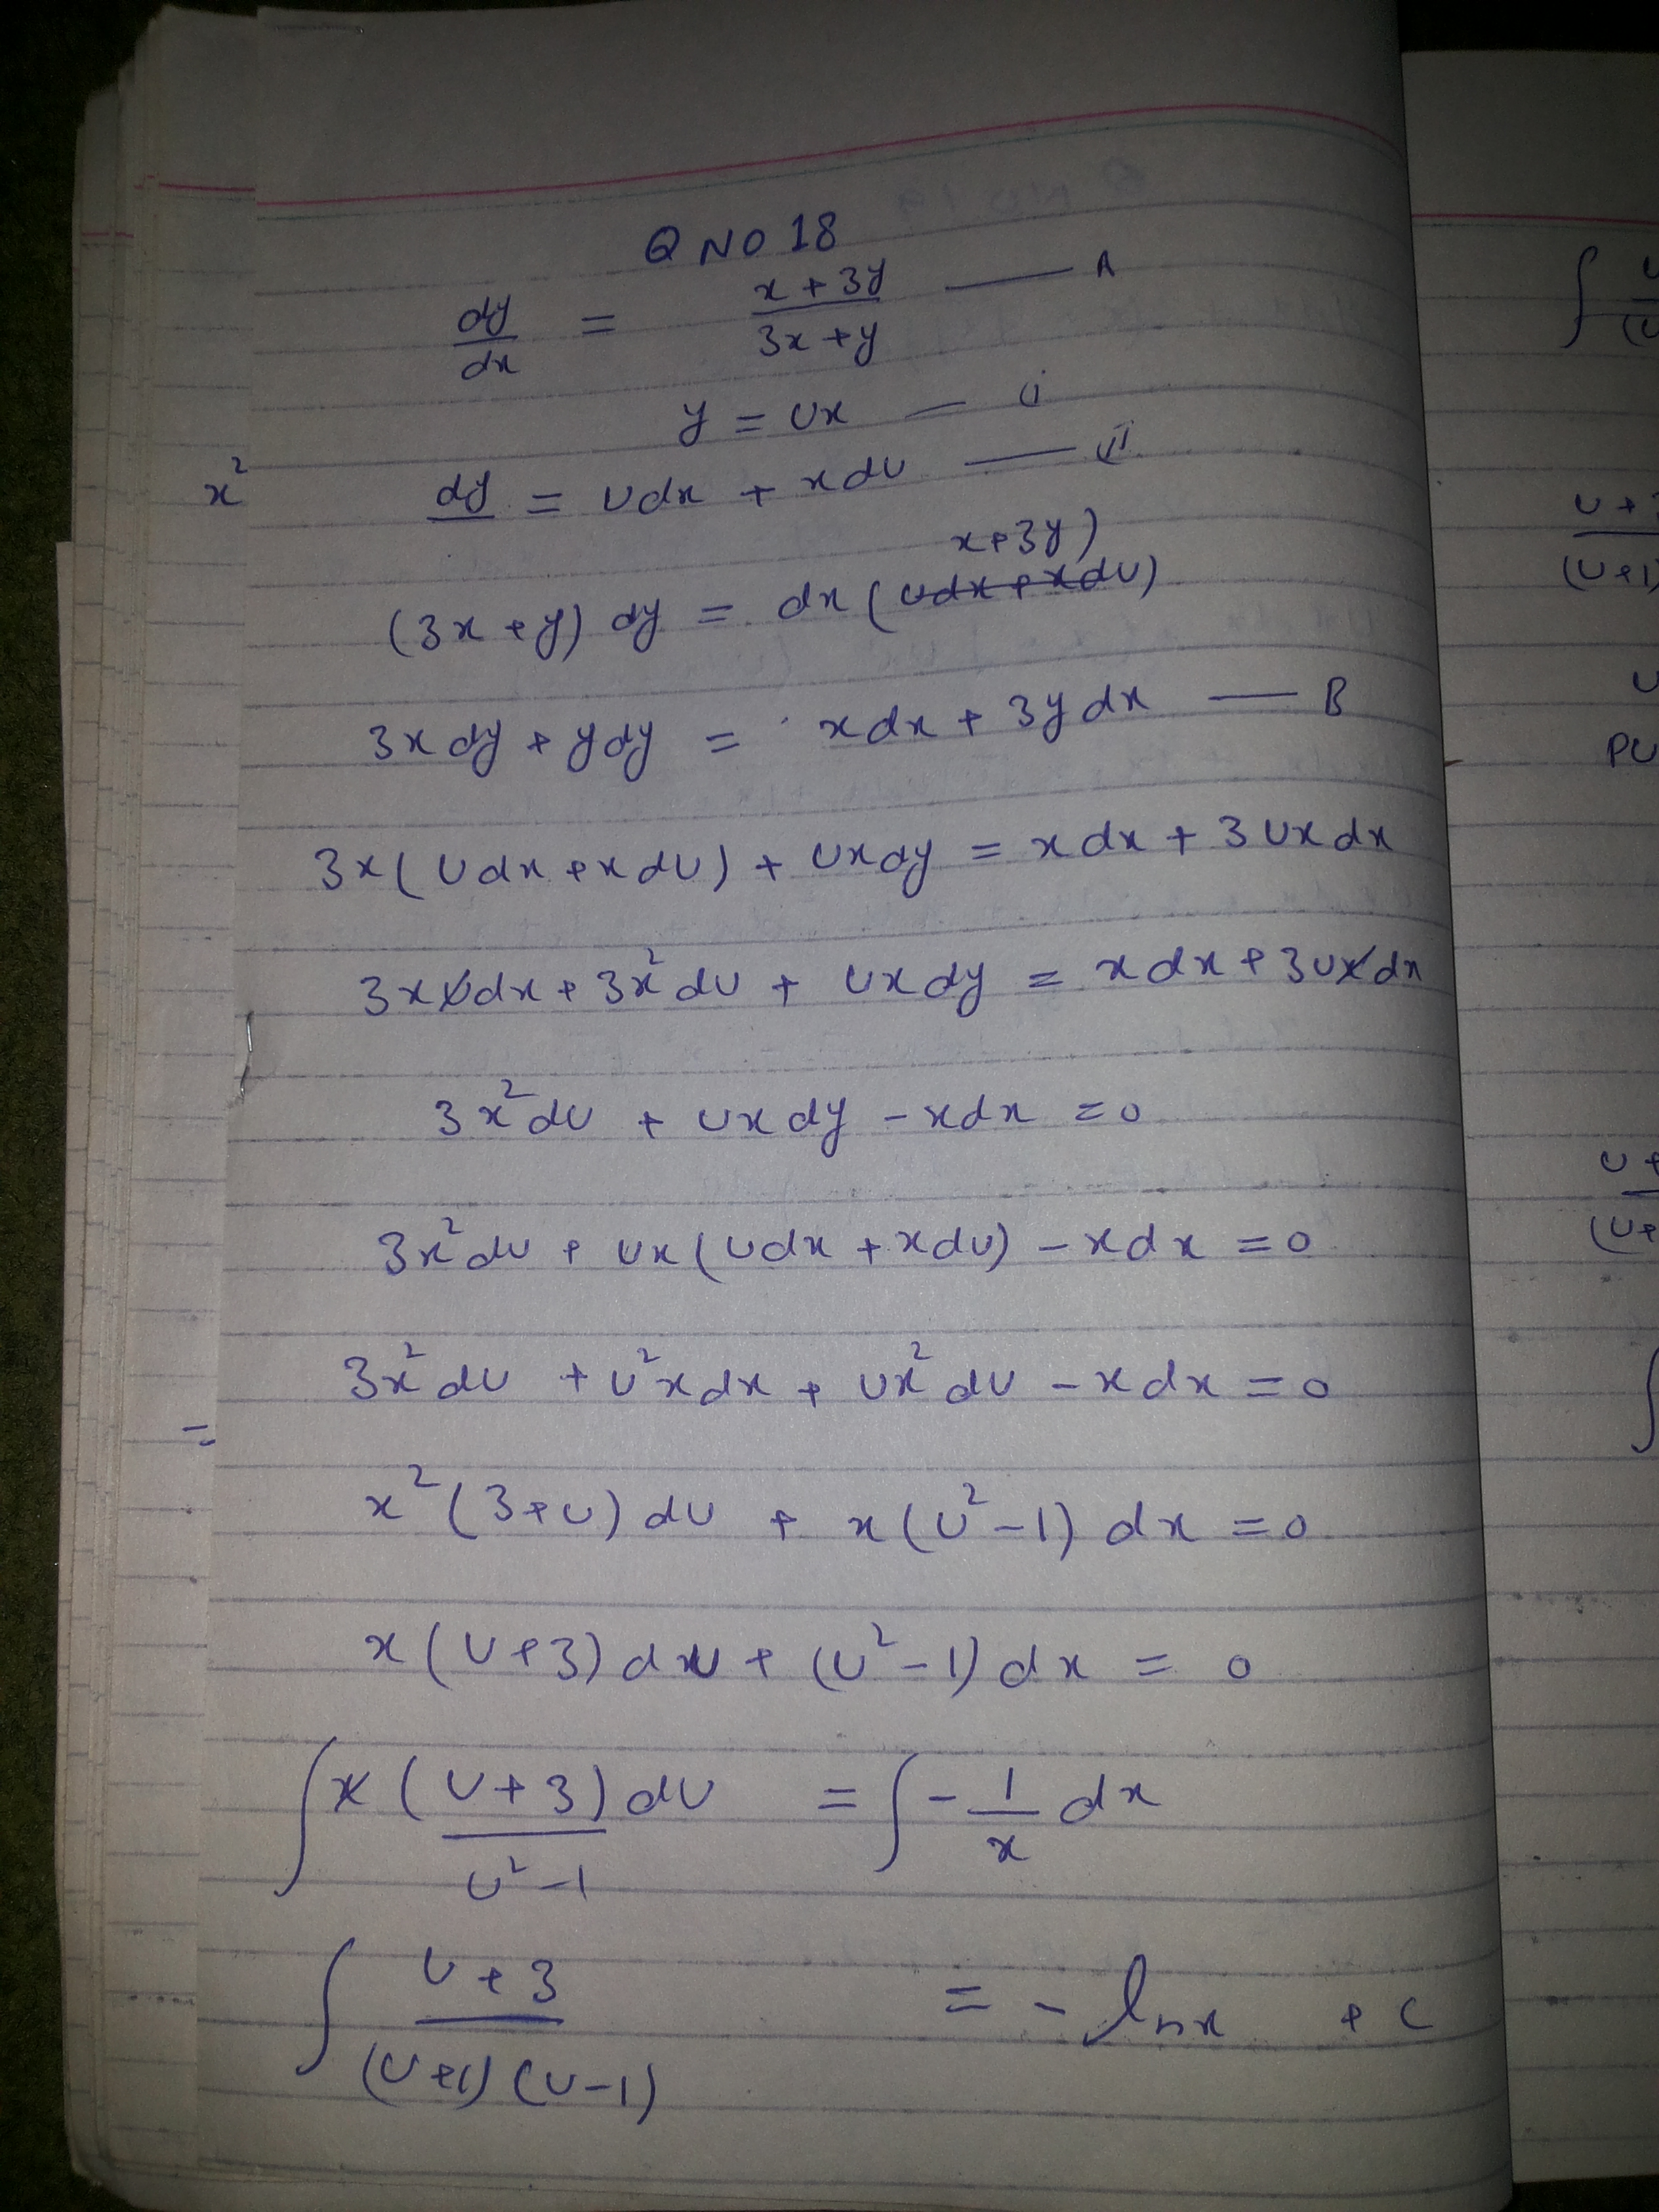 Q NO 18
dy/dx = (x + 3y)/(3x + y) — A
y = Ux — i
x²
dy = Udx + xdU — ii
x+3y)
(3x + y) dy = dx (Udx + xdU)
3x dy + y dy = x dx + 3y dx — B
3x (U dx + x dU) + Ux dy = x dx + 3 Ux dx
3xUdx + 3x² dU + Ux dy = x dx + 3Uxdx
3x² dU + Ux dy - x dx = 0
3x² dU + Ux (Udx + xdU) - x dx = 0
3x² dU + U² x dx + Ux² dU - x dx = 0
=
x² (3+U) dU + x (U² - 1) dx = 0
x (U+3) dU + (U² - 1) dx = 0
∫ x (U+3) dU / U² - 1 = ∫ - 1/x dx
∫ U + 3 / (U+1) (U-1) = - ln x + C
∫
U +
(U+1)
U
PU
U +
(U+
∫